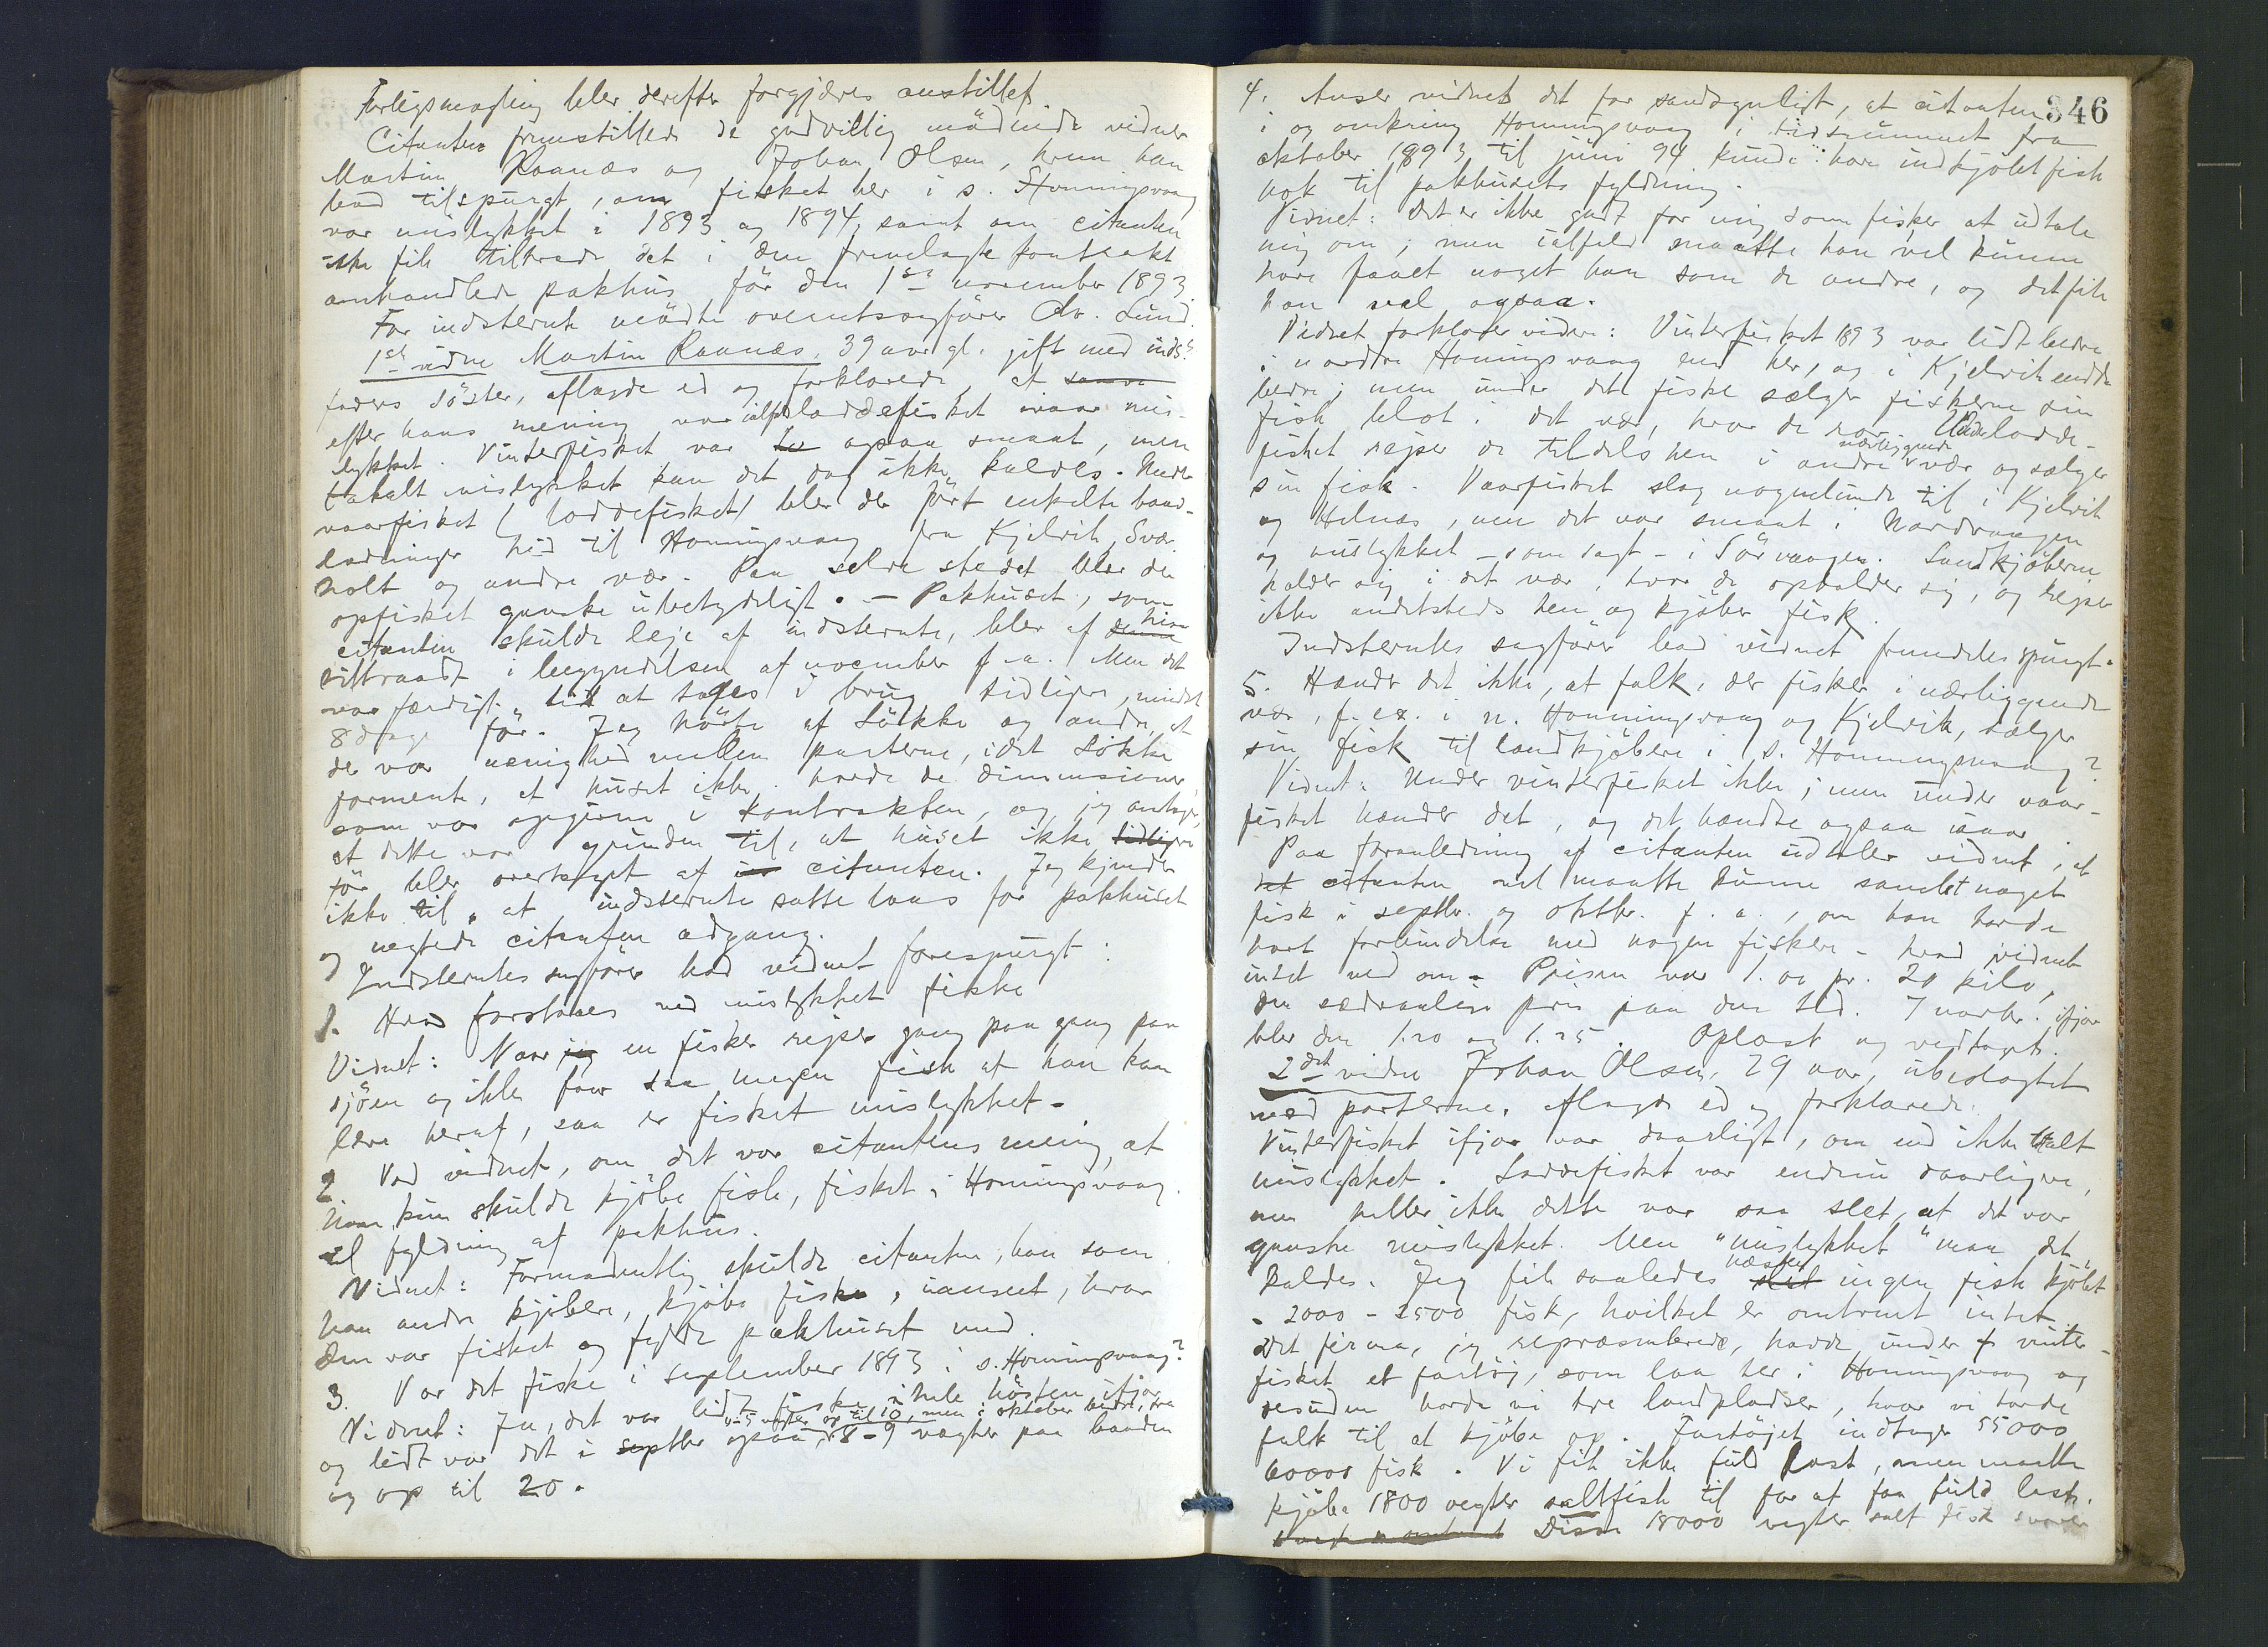 Forligsmægling blev derefter forgjæves anstillet.
Citanten fremstillede de godvillig mødende vidner
Martin Raanæs og Johan Olsen, hvem han
bad tilspurgt, om fisket her i s. Honningsvaag
var mislykket i 1893 og 1894, samt om citanten
ikke fik tiltræde det i den fremlagte kontrakt
omhandlede pakhus før den 1ste november 1893.
For indstevnte mødte overretssagfører Chr. Lund.
1ste vidne Martin Raanæs, 39 aar gl. gift med indst.s
faders søster, aflagde ed og forklarede, at
efter hans mening var ialfald loddefisket iaar mis-
lykket. Vinterfisket var ogsaa smaat, men
totalt mislykket kan det dog ikke kaldes. Under
vaarfisket (loddefisket) blev der ført enkelte baad-
ladninger hid til Honingsvaag fra Kjelvik, Svær-
holt og andre vær. Paa selve stedet blev der
opfisket ganske ubetydeligt. – Pakhuset, som
citanten skulde leje af indstevnte, blev af ham
tiltraadt i begyndelsen af november f. a. Men det
var færdigt til at tages i brug tidligere, mindst
8 dage før. Jeg hørte af Løkke og andre, at
der var uenighed mellem parterne, idet Løkke
formente, at huset ikke havde de dimensioner
som var opgivne i kontrakten, og jeg antager,
at dette var grunden til, at huset ikke tidligere
før blev overtaget af citanten. Jeg kjender
ikke til, at indstevnte satte laas for pakhuset
og negtede citanten adgang.
Indstevntes sagfører bad vidnet forespurgt:
1. Hvad forstaaes ved mislykket fiske
Vidnet: Naar jeg en fisker rejser gang paa gang paa
sjøen og ikke faar saa megen fisk at han kan
leve heraf, saa er fisket mislykket.
2. Ved vidnet, om det var citantens mening, at
han kun skulde kjøbe fisk, fisket i Honningsvaag
til fyldning af pakhus.
Vidnet: Formodentlig skulde citanten, han som
han andre kjøbere, kjøbe fiske, uanseet, hvor
den var fisket og fylde pakhuset med.
3. Var det fiske i september 1893 i s. Honningsvaag?
Vidnet: Ja, det var lidt fiske i hele høsten ifjor
og lidt var det i septbr ogsaa, 4-5 vægter op til 10, men i oktober bedre, fra 8-9 vægter paa baaden
og op til 20.
346
4. Anser vidnet det for sandsynligt, at citanten
i og omkring Honningsvaag i tidsrummet fra
oktober 1893 til juni 94 kunde have indkjøbt fisk
nok til pakhusets fyldning.
Vidnet: Det er ikke godt for mig som fisker at udtale
mig om; men ialfald maatte han vel kunne
have faaet noget han som de andre, og det fik
han vel ogsaa.
Vidnet forklarer videre: Vinterfisket 1893 var lidt bedre
i nordre Honningsvaag end her, og i Kjelvik endda
bedre; men under det fiske sælger fiskerne sin
fisk blot i det vær, hvor de ror. Under lodde-
fisket rejser de tildels hen i andre nærliggende vær og sælger
sin fisk. Vaarfisket slog nogenlunde til i Kjelvik
og Helnæs, men det var smaat i Nordvaagen
og mislykket – som sagt – i Sørvaagen. Landkjøberne
holder sig i det vær, hvor de opholder sig, og rejser
ikke andetsteds hen og kjøber fisk.
Indstevntes sagfører bad vidnet fremdeles spurgt:
5. Hænder det ikke, at folk, der fisker i nærliggende
vær, f. ex. i n. Honningsvaag og Kjelvik, sælger
sin fisk til landkjøbere i s. Honningsvaag?
Vidnet: Under vinterfisket ikke; men under vaar-
fisket hænder det, og det hændte ogsaa iaar
Paa foranledning af citanten udtaler vidnet, at
citanten vel maatte kunne samlet noget
fisk i septbr. og oktbr. f. a., om han havde
havt forbindelse med nogen fiskere – hvad vidnet
intet ved om. Prisen var 1.00 pr. 20 kilo,
den sædvanlige pris paa den tid. I novbr. ifjor
blev den 1.20 og 1.25. Oplæst og vedtaget.
2det vidne Johan Olsen, 29 aar, ubeslægtet
med parterne, aflagde ed og forklarede:
Vinterfisket ifjor var daarligt, om end ikke totalt
mislykket. Loddefisket var endnu daarligere,
men heller ikke dette var saa slet, at det var
ganske mislykket. Men "mislykket" maa det
kaldes. Jeg fik saaledes næsten ingen fisk kjøbt
- 2000 - 2500 fisk, hvilket er omtrent intet.
Det firma, jeg repræsenterede, havde under vinter-
fisket et fartøj, som laa her i Honningsvaag og
desuden havde vi tre landpladser, hvor vi havde
folk til at kjøbe op. Fartøjet indtager 55000
60000 fisk. Vi fik ikke fuld last, men maatte
kjøbe 1800 vegter saltfisk til for at faa fuld last.
Disse 18000 vegter salt fisk svarer